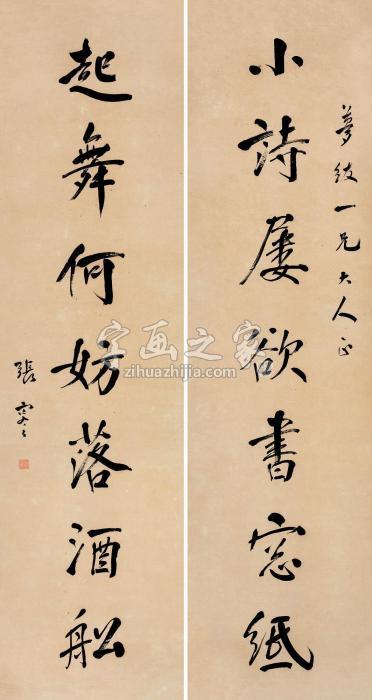 夢一兄大人正
小詩屢欲書窓紙
起舞何妨落酒舩
張
字画之家
zihuazhijia.com